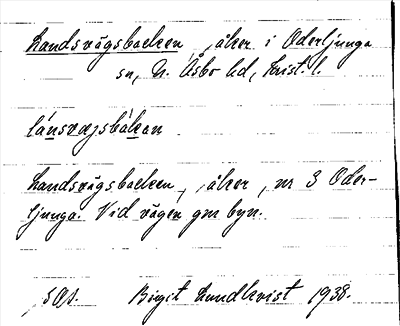 Landsvägsbacken, åker i Oderljunga
sn, N. Åsbo hd, Krist. l.
lánsvæjsbákan
Landsvägsbacken, åker, nr 3 Oder-
ljunga. Vid vägen gm byn.
SOA. Birgit Lundkvist 1938.